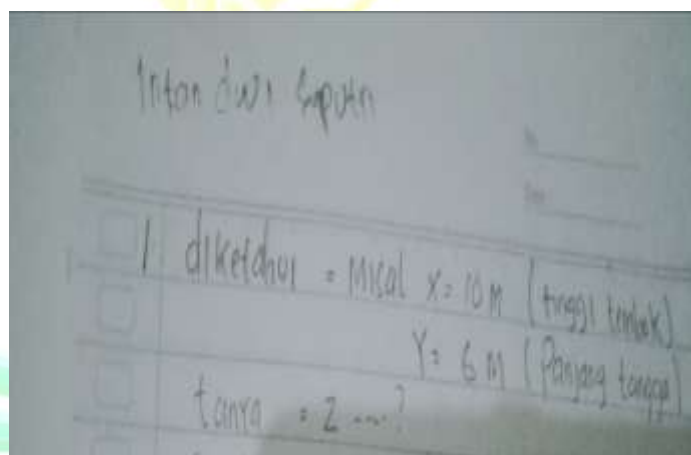 Intan dwi saputri
No
Date
1 diketahui = Misal x = 10 M (tinggi tembok)
Y = 6 M (Panjang tangga)
tanya = z ...?